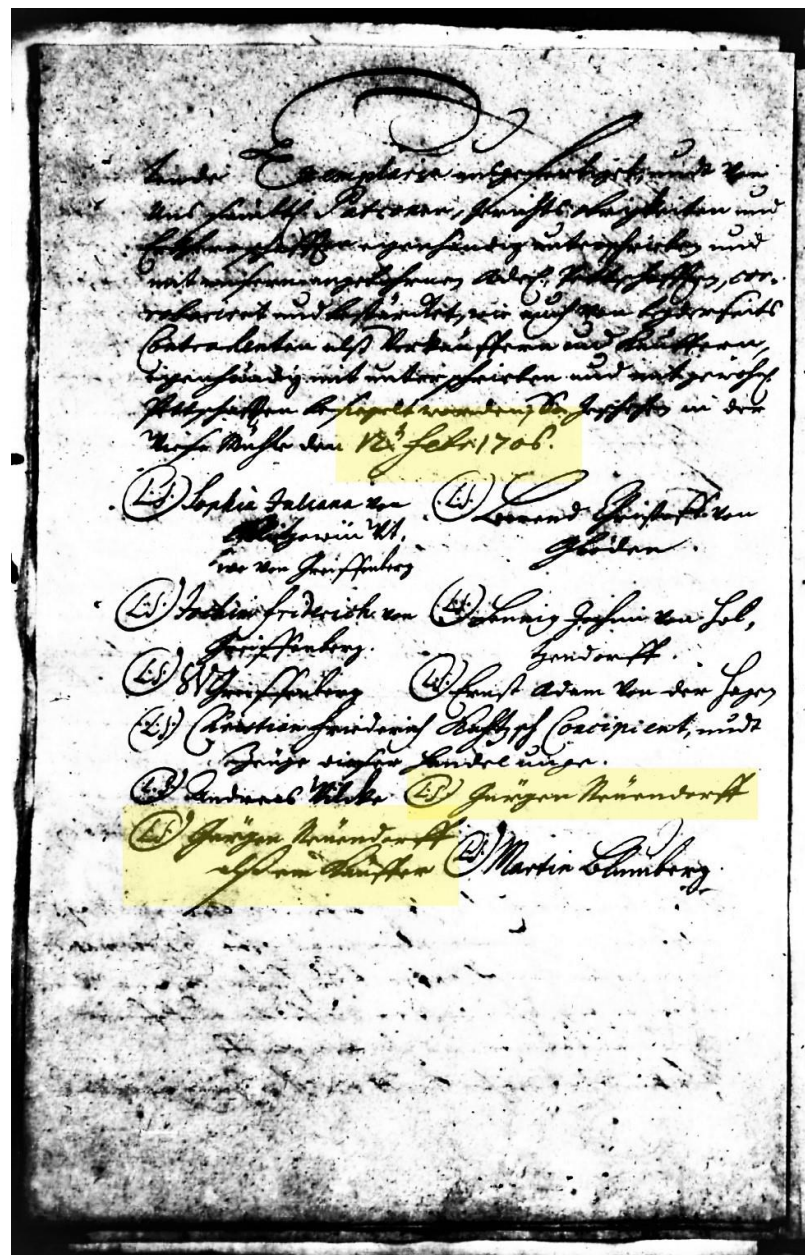 Exemplaria außgefertiget, undt von
Uns sämbtl. Patronen, Gerichts Obrigkeiten und
eigenhändig unterschrieben und
mit unserm angebohrnen Adel. Pettschafften, cor-
roboriret und bekräfftiget, wie auch von beyderseits
Contrahenten alß Verkäuffern und Käuffern,
eigenhändig mit unterschrieben und mit
Pettschafften besiegelt worden, So geschehen in der
Mühle den 12t Febr: 1706.
(L.S.) Sophia Juliana von (L.S.) Berend Christoff von
Wt. Glöden.
von Greiffenberg
(L.S.) Jochim Friderich von (L.S.) Hennig Jochim von Hol,
Greiffenberg. tzendorff.
(L.S.) Greiffenberg (L.S.) Ernst Adam von der Hagen
(L.S.) Christian Friederich Concipient, undt
Zeuge dieser Handelunge.
(L.S.) Andreas Wilcke (L.S.) Jürgen Neuendorff
(L.S.) Jürgen Neuendorff
alß ein Käuffer (L.S.) Martin Blumberg.